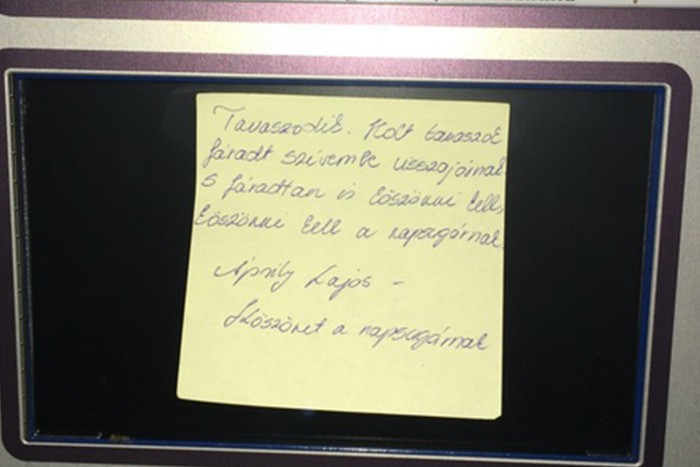 Tavaszodik. Holt tavaszok
fáradt szívembe visszajárnak
s fáradtan is köszönni kell,
köszönni kell a napsugárnak.
Áprily Lajos -
Köszönet a napsugárnak